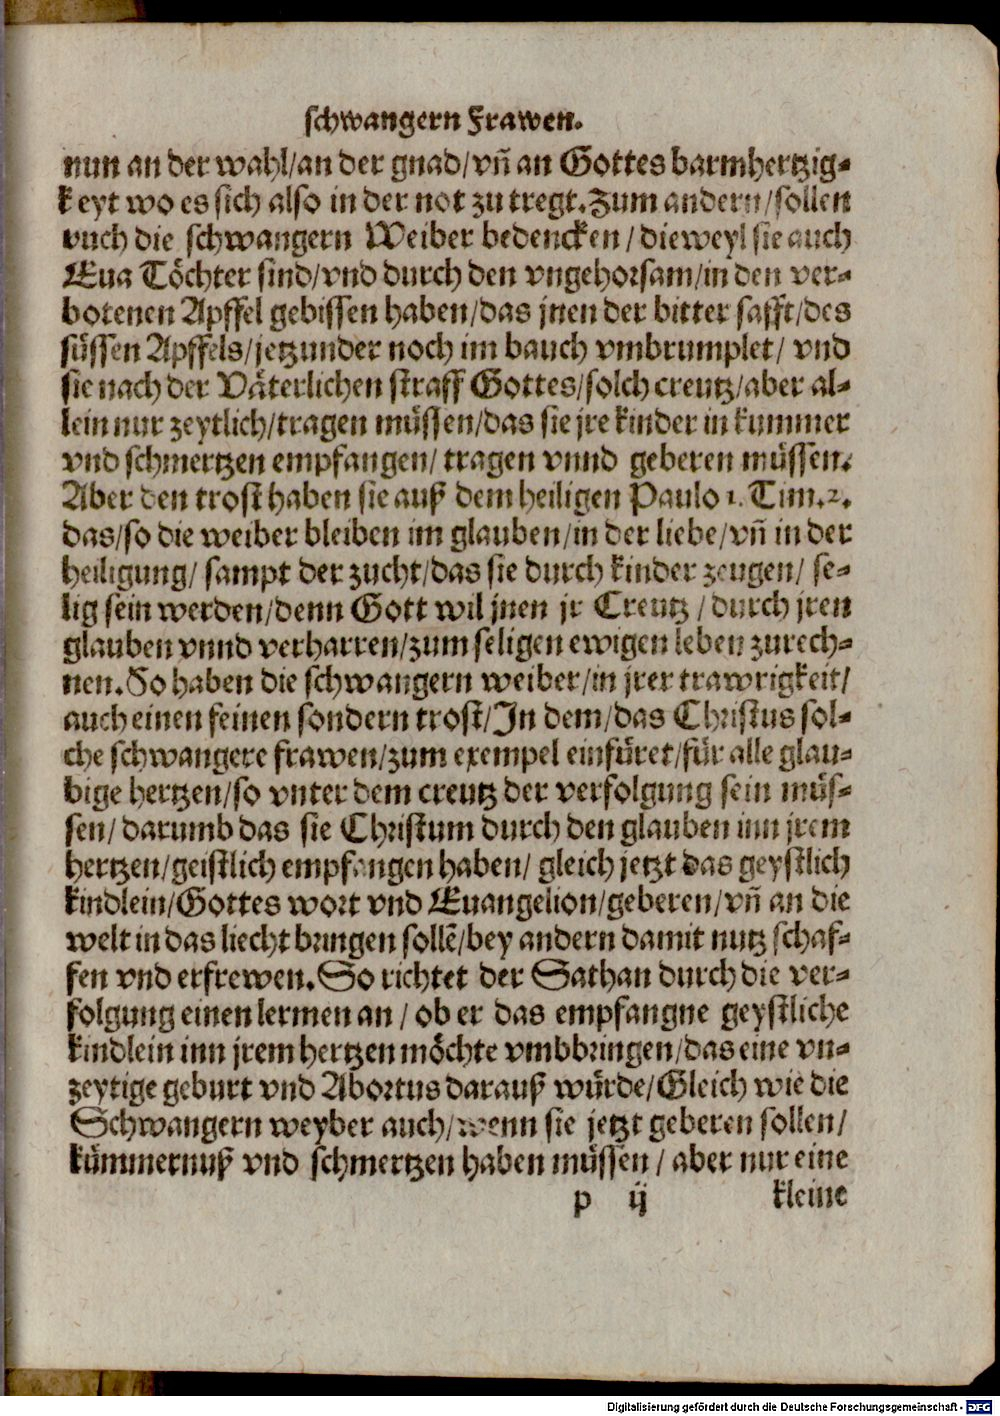 schwangern Frawen.
nun an der wahl/an der gnad/vñ an Gottes barmhertzig-
keyt wo es sich also in der not zu tregt. Zum andern/sollen
vuch die schwangern Weiber bedencken/dieweyl sie auch
Eua Töchter sind/vnd durch den vngehorsam/in den ver-
botenen Apffel gebissen haben/das jnen der bitter safft/des
süssen Apffels/jetzunder noch im bauch vmbrumplet/ vnd
sie nach der Väterlichen straff Gottes/solch creutz/aber al-
lein nur zeytlich/tragen müssen/das sie jre kinder in kummer
vnd schmertzen empfangen/ tragen vnnd geberen müssen.
Aber den trost haben sie auß dem heiligen Paulo 1. Tim. 2.
das/so die weiber bleiben im glauben/in der liebe/vñ in der
heiligung/ sampt der zucht/das sie durch kinder zeugen/ se-
lig sein werden/denn Gott wil jnen jr Creutz/durch jren
glauben vnnd verharren/zum seligen ewigen leben zurech-
nen. So haben die schwangern weiber/in jrer trawrigkeit/
auch einen feinen sondern trost/In dem/das Christus sol-
che schwangere frawen/zum exempel einfüret/für alle glau-
bige hertzen/so vnter dem creutz der verfolgung sein müs-
sen/ darumb das sie Christum durch den glauben inn jrem
hertzen/geistlich empfangen haben/ gleich jetzt das geystlich
kindlein/Gottes wort vnd Euangelion/geberen/vñ an die
welt in das liecht bringen sollē/bey andern damit nutz schaf-
fen vnd erfrewen. So richtet der Sathan durch die ver-
folgung einen lermen an/ ob er das empfangne geystliche
kindlein inn jrem hertzen möchte vmbbringen/das eine vn-
zeytige geburt vnd Abortus darauß würde/Gleich wie die
Schwangern weyber auch/wenn sie jetzt geberen sollen/
kümmernuß vnd schmertzen haben müssen/ aber nur eine
p ij kleine
Digitalisierung gefördert durch die Deutsche Forschungsgemeinschaft - DFG